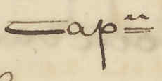 Capⁿ